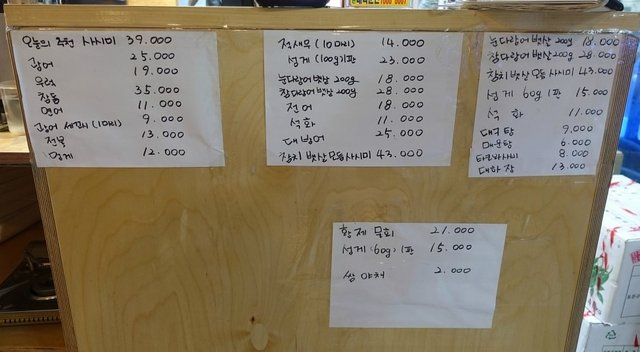 오늘의 추천 사시미 39.000
광어 25.000
우럭 19.000
참돔 35.000
연어 11.000
광어 세꼬시 (1마리) 9.000
전복 13.000
멍게 12.000
적새우 (10마리) 14.000
성게 (100g) 1판 23.000
눈다랑어 뱃살 200g 18.000
참다랑어 뱃살 200g 28.000
전어 18.000
석화 11.000
대방어 25.000
참치 뱃살 모듬 사시미 43.000
눈다랑어 뱃살 200g 18.000
참다랑어 뱃살 200g 28.000
참치 뱃살 모듬 사시미 43.000
성게 60g 1판 15.000
석화 11.000
대구탕 9,000
매운탕 6.000
타코와사비 8.000
대하장 13.000
황제 물회 21.000
성게 (60g) 1판 15.000
쌈 야채 2.000